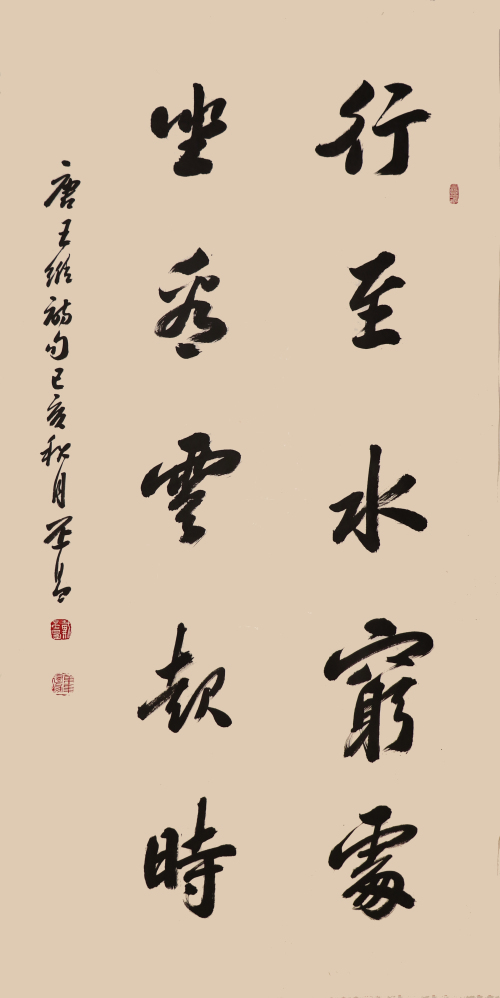 行至水窮處
坐看雲起時
唐王維詩句己亥秋月